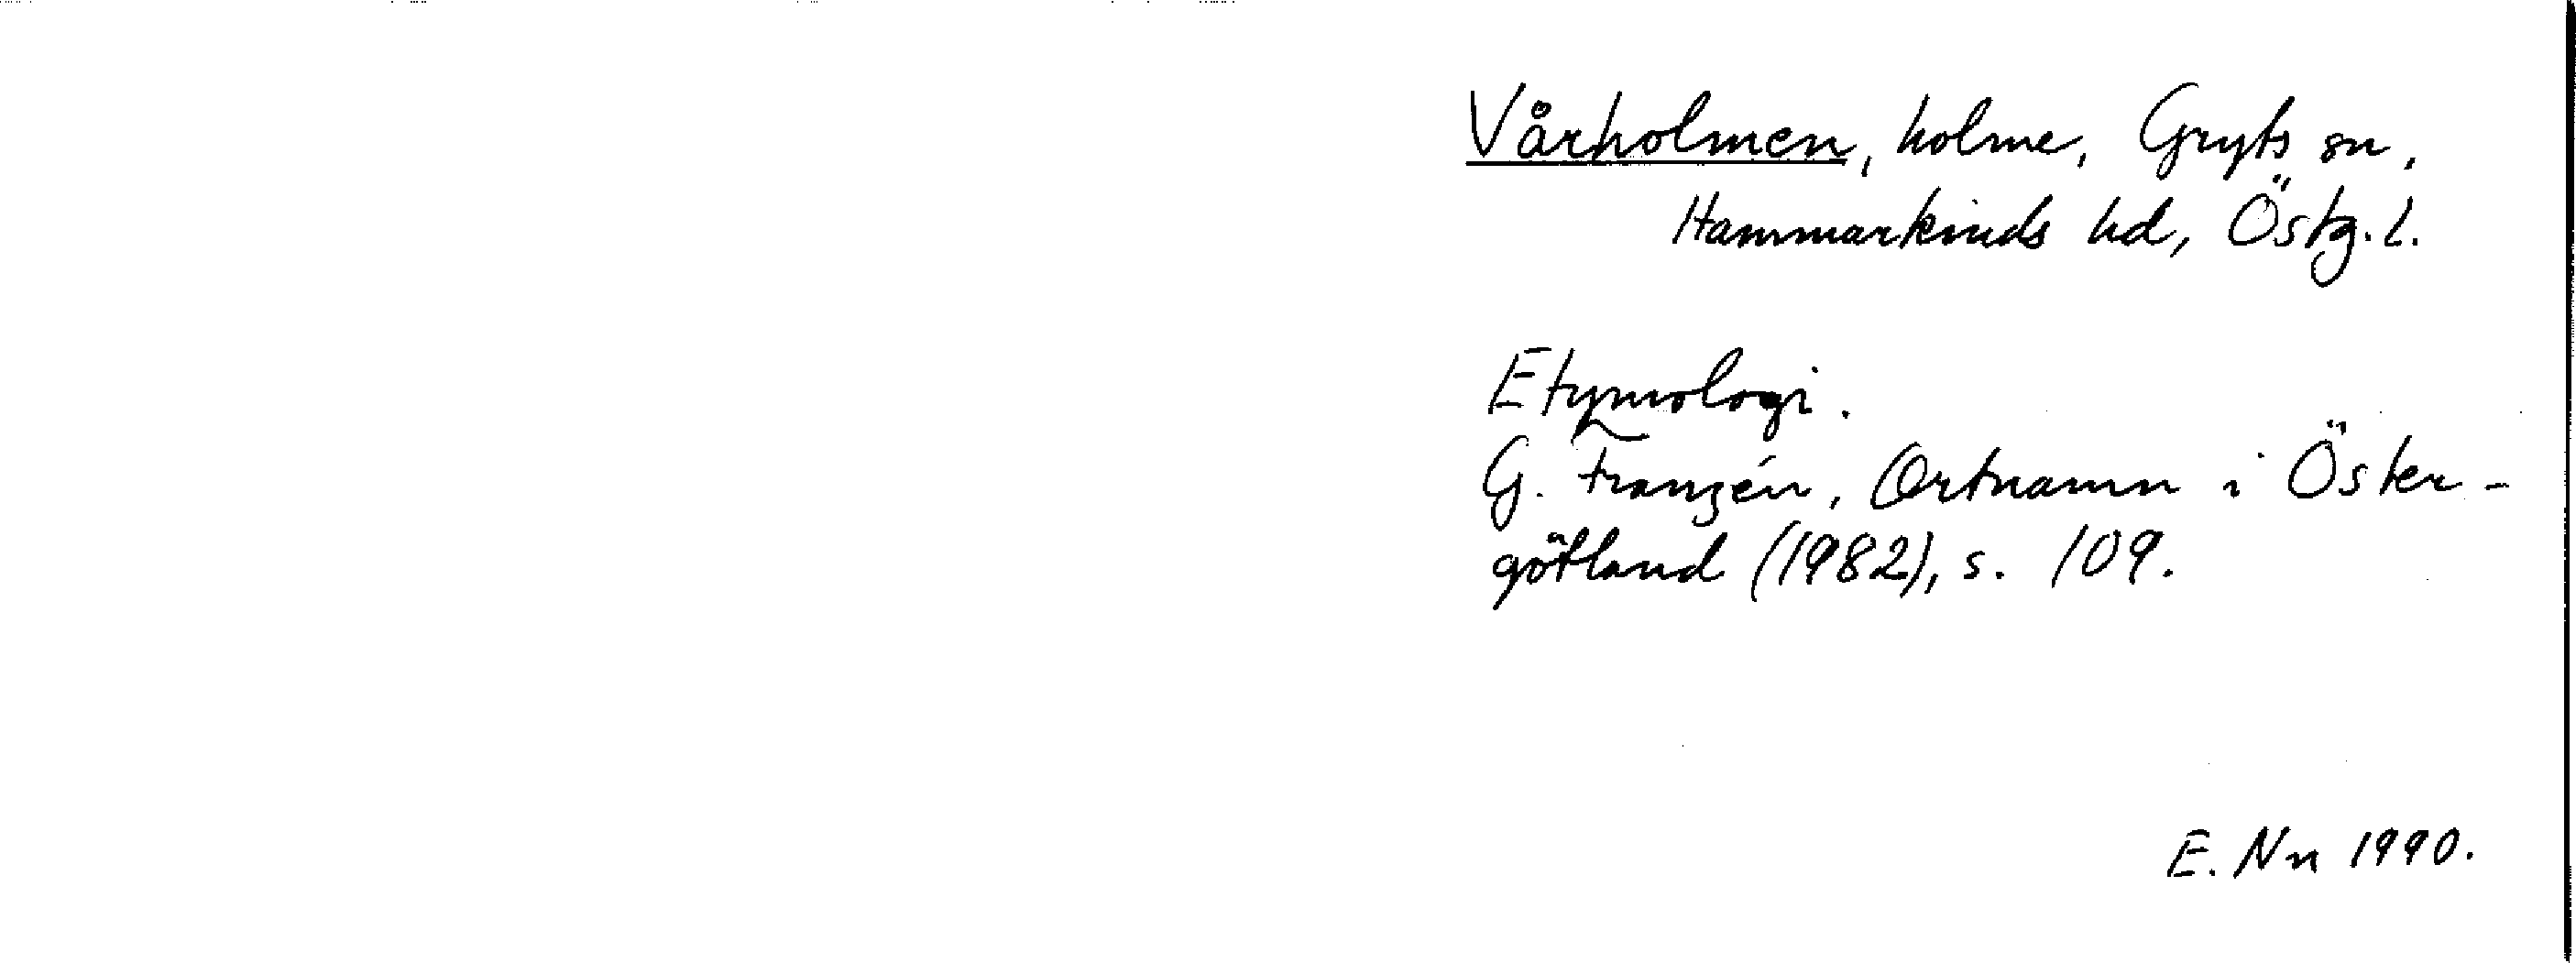 Vårholmen, holme, Gryts sn,
Hammarkinds hd, Östg. l.
Etymologi.
G. Franzén, Ortnamn i Öster-
götland (1982), s. 109.
E. Nn 1990.